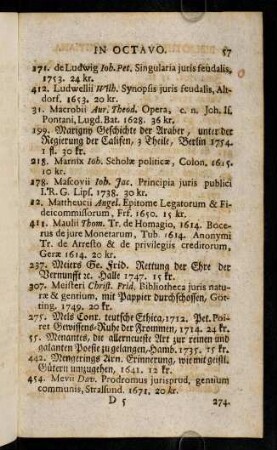 IN OCTAVO. 57
271. de Ludwig Joh. Pet. Singularia juris feudalis,
1753. 24 kr.
412. Ludwellii Wilh. Synopsis juris feudalis, Alt-
dorf. 1653. 20 kr.
31. Macrobii Aur. Theod. Opera, c. n. Joh. Is.
Pontani, Lugd. Bat. 1628. 36 kr.
199. Marigny Geschichte der Araber, unter der
Regierung der Califen, 3 Theile, Berlin 1754.
1 fl. 30 kr.
218. Marnix Joh. Scholæ politicæ, Colon. 1615.
10 kr.
178. Mascovii Joh. Jac. Principia juris publici
I. R. G. Lips. 1738. 30 kr.
22. Mattheucii Angel. Epitome Legatorum &
Fideicommissorum, Frf. 1650. 15 kr.
411. Maulii Thom. Tr. de Homagio, 1614. Boce-
rus de jure Monetarum, Tub. 1614. Anonymi
Tr. de Arresto & de privilegiis creditorum,
Geræ 1614. 20 kr.
237. Meiers Ge. Frid. Rettung der Ehre der
Vernunft ꝛc. Halle 1747. 15 kr.
307. Meisteri Christ. Frid. Bibliotheca juris natu-
ræ & gentium, mit Pappier durchschossen, Göt-
ting. 1749. 20 kr.
275. Mels Conr. teutsche Ethica, 1712. Pet. Poi-
ret Gewissens-Ruhe der Frommen, 1714. 24 kr.
55. Menantes, die allerneueste Art zur reinen und
galanten Poesie zu gelangen, Hamb. 1735. 15 kr.
442. Mengerings Arn. Erinnerung, wie mit geistl.
Gütern umzugehen, 1641. 12 kr.
454. Mevii Dav. Prodromus jurisprud. gentium
communis, Stralsund. 1671. 20 kr.
D 5 274.